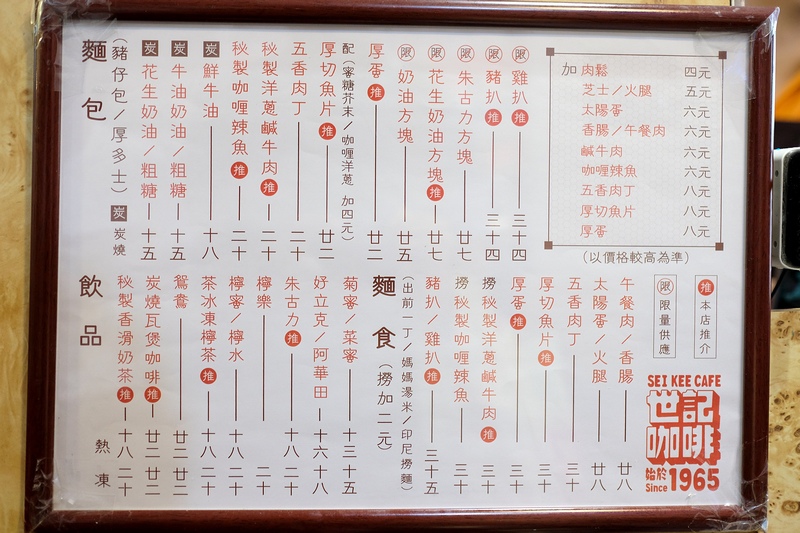 麵包
(豬仔包/厚多士) 炭 炭燒
炭 花生奶油/粗糖 十五
炭 牛油奶油/粗糖 十五
炭 鮮牛油 十八
秘製咖喱辣魚 推 二十
秘製洋蔥鹹牛肉 推 二十
五香肉丁 二十
厚切魚片 推 廿二
配(蜜糖芥末/咖喱洋蔥 加四元)
厚蛋 推 廿二
限 奶油方塊 廿五
限 花生奶油方塊 推 廿七
限 朱古力方塊 廿七
限 豬扒 推 三十四
限 雞扒 推 三十四
加 肉鬆 四元
芝士/火腿 五元
太陽蛋 六元
香腸/午餐肉 六元
鹹牛肉 六元
咖喱辣魚 六元
五香肉丁 八元
厚切魚片 八元
厚蛋 八元
(以價格較高為準)
飲品 熱 凍
秘製香滑奶茶 推 十八 二十
炭燒瓦煲咖啡 推 廿二 廿二
鴛鴦 廿二 廿二
茶冰凍檸茶 推 十八 二十
檸蜜/檸水 十八 二十
檸樂 二十
朱古力 推 十八 二十
好立克/阿華田 十六 十八
菊蜜/菜蜜 十三 十五
麵食(撈加二元)
(出前一丁/媽媽湯米/印尼撈麵)
豬扒/雞扒 推 三十五
撈 秘製咖喱辣魚 三十
撈 秘製洋蔥鹹牛肉 推 三十
厚蛋 推 三十
厚切魚片 推 三十
五香肉丁 三十
太陽蛋/火腿 廿八
午餐肉/香腸 廿八
限 限量供應
推 本店推介
SEI KEE CAFE
世記
咖啡
始於
Since 1965